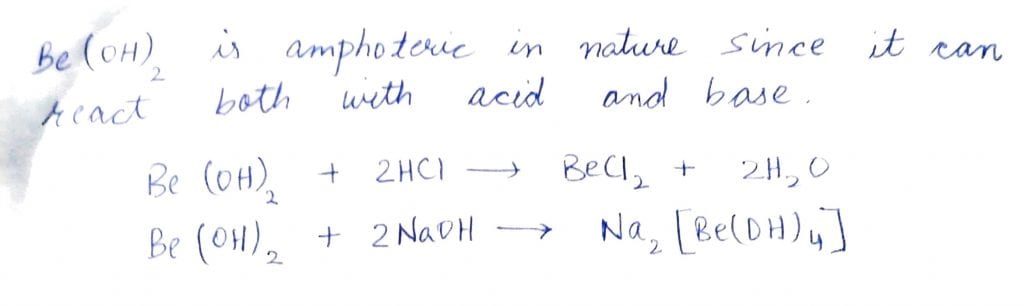 Be(OH)₂ is amphoteric in nature since it can
react both with acid and base.
Be (OH)₂ + 2HCl ⟶ BeCl₂ + 2H₂O
Be (OH)₂ + 2NaOH ⟶ Na₂ [Be(OH)₄]